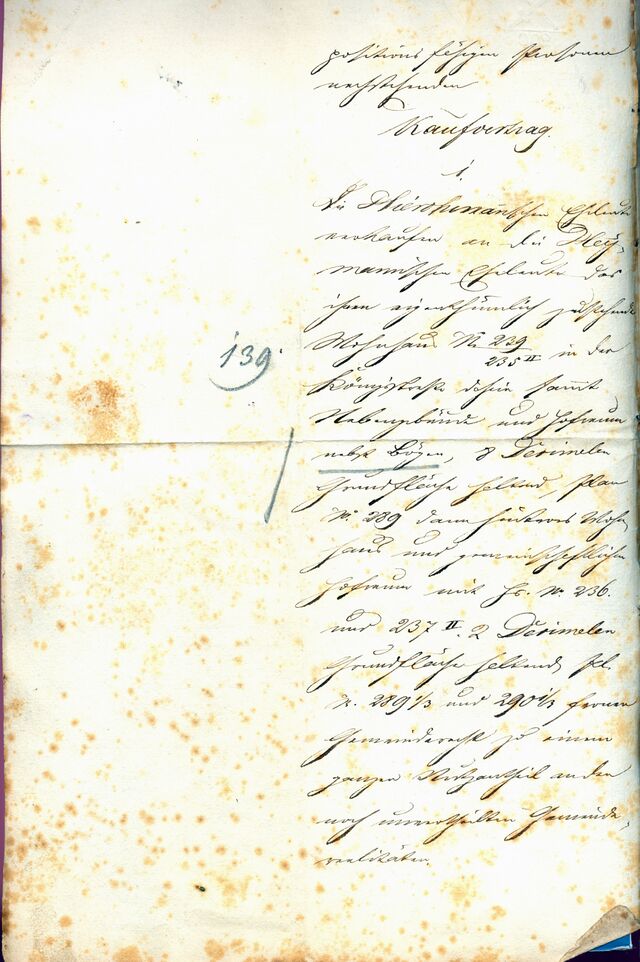 positionsfähigen Personen
nachstehenden
Kaufvertrag.
1.
Die schen Eheleute
verkaufen an die Hey-
mannischen Eheleute das
ihnen eigenthümlich zustehende
Wohnhaus No 239/235 II in der
Königstraße dahier sammt
Nebengebäude und Hofraum
139.
nebst Bögen, 8 Dezimalen
Grundfläche haltend, Plan
No. 289 dann hinteres Wohn
haus und gemeinschaftlichen
Hofraum mit Hs. No 236.
und 237 II. 2 Dezimalen
Grundfläche haltend, Pl.
N. 289 1/3 und 290 1/3 ferner
Gemeinderecht zu einem
ganzen Nutzantheil an den
noch unvertheilten Gemeinde-
realitäten.